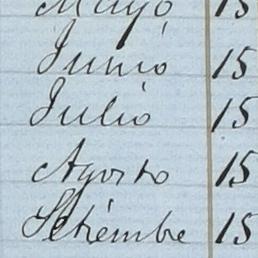 Mayo 15
Junio 15
Julio 15
Agosto 15
Setiembre 15